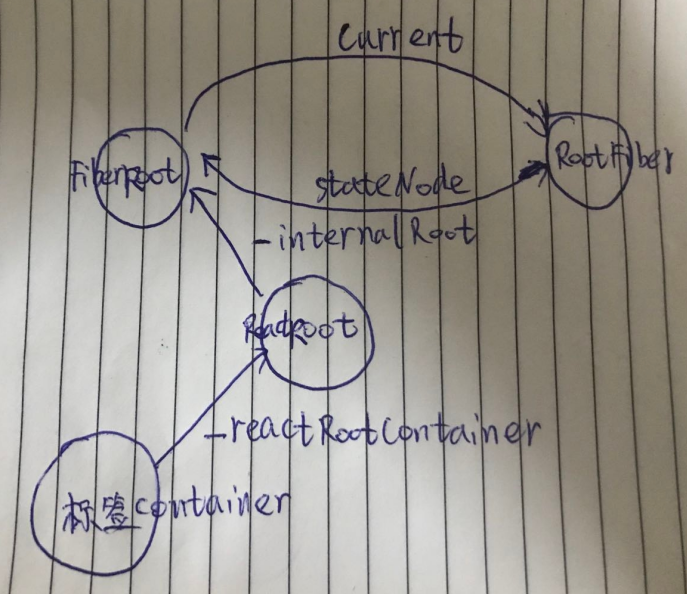 Current
FiberRoot
RootFiber
stateNode
-internalRoot
ReadRoot
-reactRootContainer
标签container